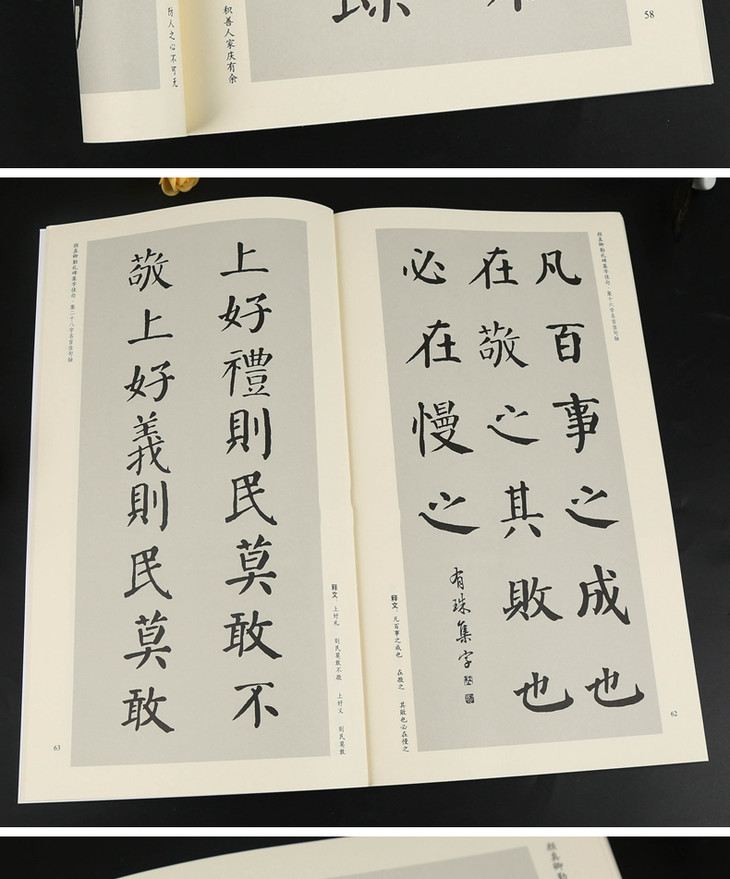 历人之心不可无
积善人家庆有余
58
颜真卿勤礼碑集字佳句·集十六字名言佳句轴
凡百事之成也
在敬之其敗也
必在慢之
有珠集字
释文：凡百事之成也 在敬之 其败也必在慢之
62
上好禮則民莫敢不
敬上好義則民莫敢
释文：上好礼 则民莫敢不敬 上好义 则民莫敢
颜真卿勤礼碑集字佳句·集二十八字名言佳句轴
63
颜真卿勤